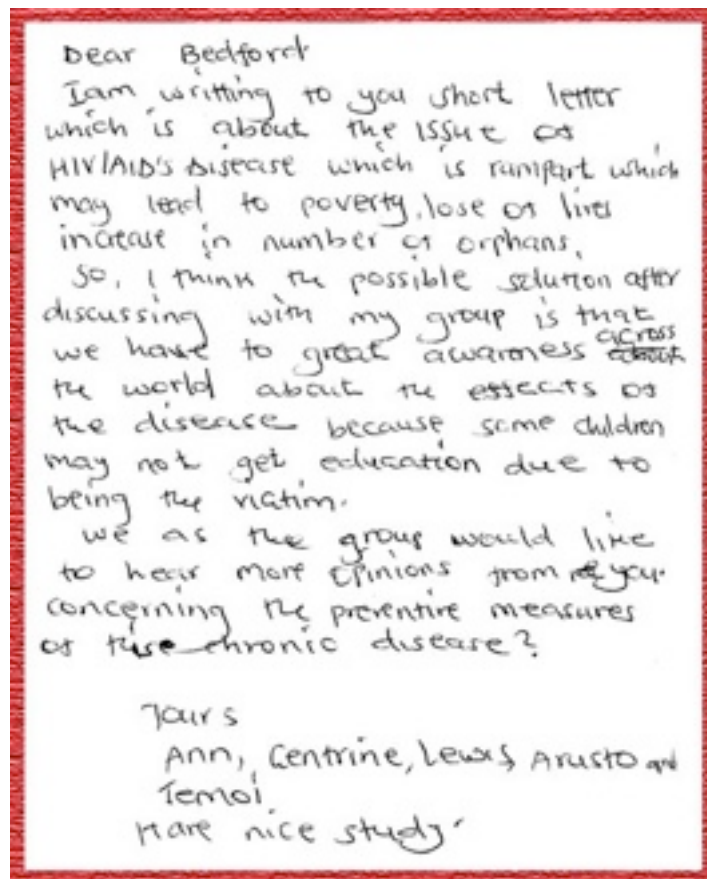 Dear Bedford
Iam writting to you short letter
which is about the issue of
HIV/AID's Disease which is rampart which
may lead to poverty, lose of lives
increase in number of orphans.
So, I think the possible solution after
discussing with my group is that
we have to great awarness across about
the world about the effects of
the disease because some children
may not get education due to
being the victim.
we as the group would like
to hear more opinions from you.
concerning the preventive measures
of this chronic disease?
Yours
Ann, Centrine, Lewis, Arusto and
Temoi
Have nice study.